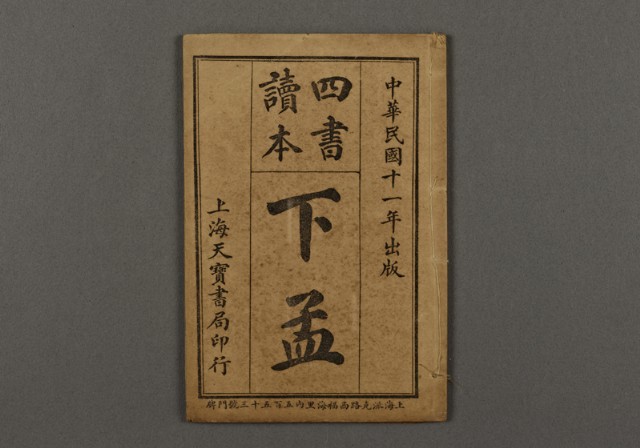 中華民國十一年出版
四書
讀本
下孟
上海天寶書局印行
上海派克路福海里內五百五十三號門牌